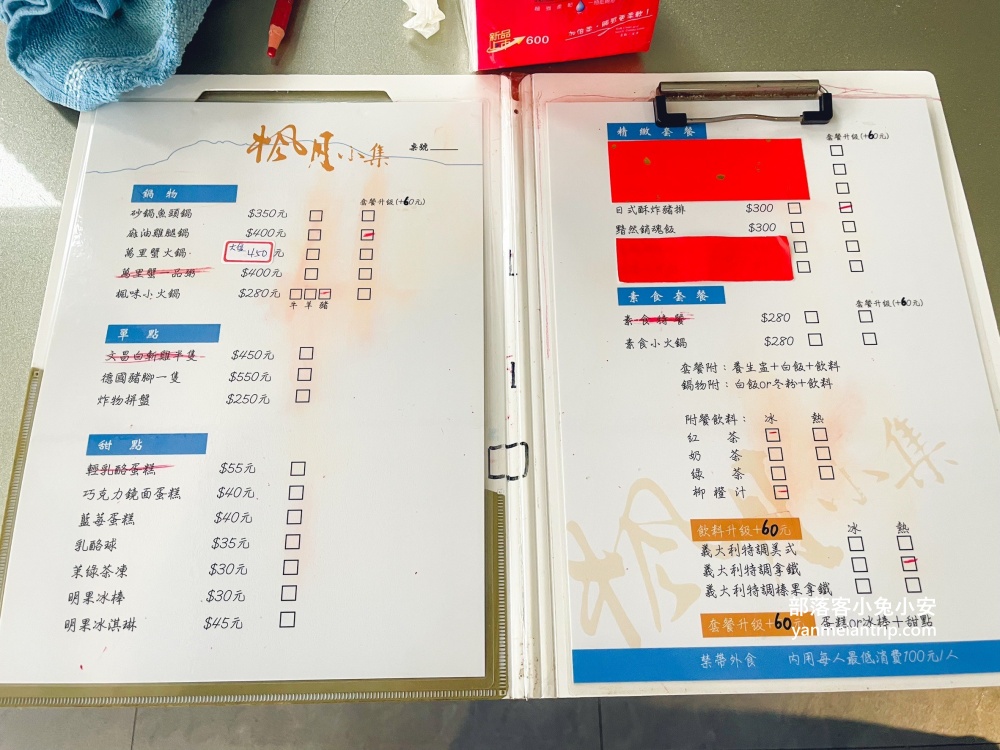 新品
上市
600
楓月小集 桌號
鍋物
套餐升級(+60元)
砂鍋魚頭鍋 $350元
麻油雞腿鍋 $400元
萬里蟹火鍋 大隻450元
萬里蟹一品粥 $400元
楓味小火鍋 $280元
牛 羊 豬
單點
文昌白斬雞半隻 $450元
德國豬腳一隻 $550元
炸物拼盤 $250元
甜點
輕乳酪蛋糕 $55元
巧克力鏡面蛋糕 $40元
藍莓蛋糕 $40元
乳酪球 $35元
茉綠茶凍 $30元
明果冰棒 $30元
明果冰淇琳 $45元
精緻套餐 套餐升級(+60元)
日式酥炸豬排 $300
黯然銷魂飯 $300
素食套餐 套餐升級(+60元)
素食特餐 $280
素食小火鍋 $280
套餐附：養生盅+白飯+飲料
鍋物附：白飯or冬粉+飲料
附餐飲料： 冰 熱
紅茶
奶茶
綠茶
柳橙汁
飲料升級+60元 冰 熱
義大利特調美式
義大利特調拿鐵
義大利特調榛果拿鐵
套餐升級+60元 蛋糕or冰棒+甜點
禁帶外食 內用每人最低消費100元/人
部落客小兔小安
yanmeiantrip.com